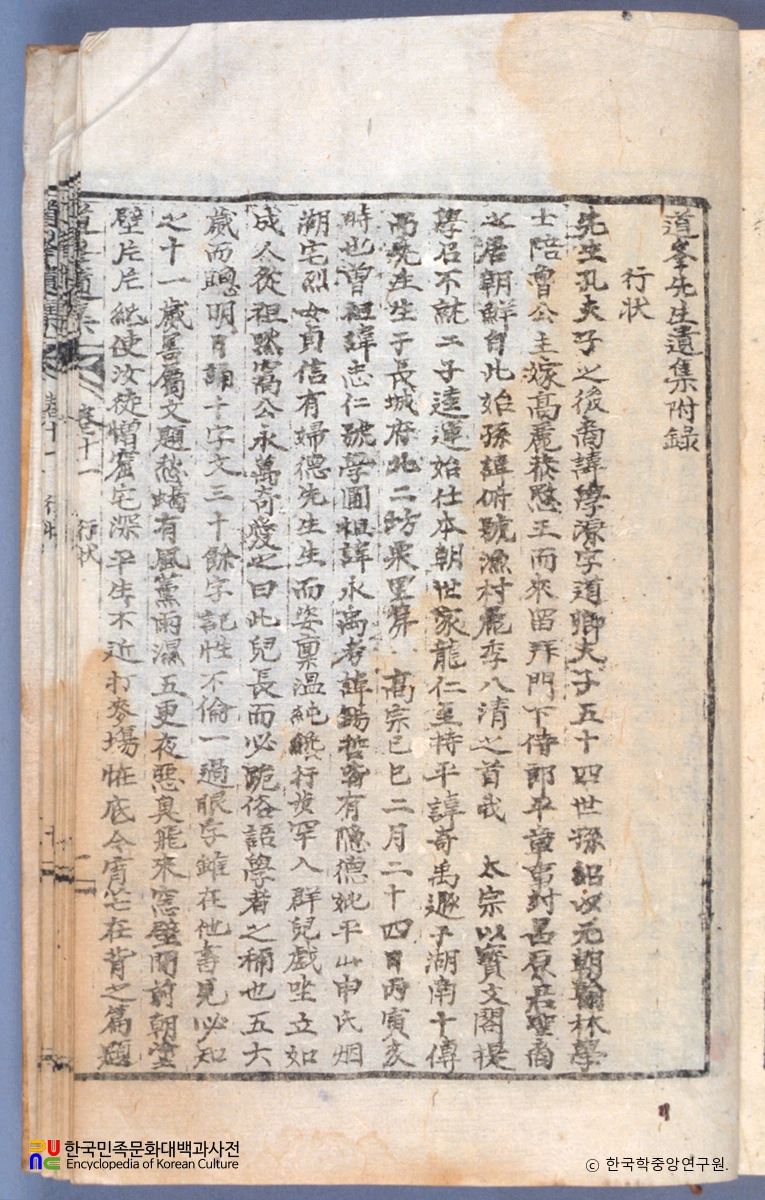 道峯先生遺集附錄
行状
先生孔夫子之後裔諱學源字道卿夫子五十四世孫紹以元朝翰林學
士陪魯公主嫁高麗恭愍王而來留拜門下侍郎平章事封昌原君聖裔
之居朝鮮自此始孫諱俯號漁村麗季八清之首我 太宗以寶文閣提
學召不就二子達運始仕本朝世家龍仁至持平諱奇禹遯于湖南十傳
而先生生于長城府北二坊栗里第 高宗己巳二月二十四日丙寅亥
時也曾祖諱忠仁號學圃祖諱永禹考諱錫哲皆有隱德妣平山申氏烟
湖宅烈女貞信有婦德先生生而姿稟溫純纔行步罕入群兒戲坐立如
成人從祖然窩公永萬奇愛之曰此兒長而必跪俗語學者之稱也五六
歲而聰明日誦十字文三十餘字記性不倫一過眼字雖在他書見必知
之十一歲善屬文題愁蝎有風薰雨濕五更夜惡臭飛來窓壁間前朝塗
壁片片紙使汝徒憎窟宅深平生不近打麥場恠底今宵芒在背之篇題
道峯遺集
卷十一
行状
한국민족문화대백과사전
Encyclopedia of Korean Culture
© 한국학중앙연구원.